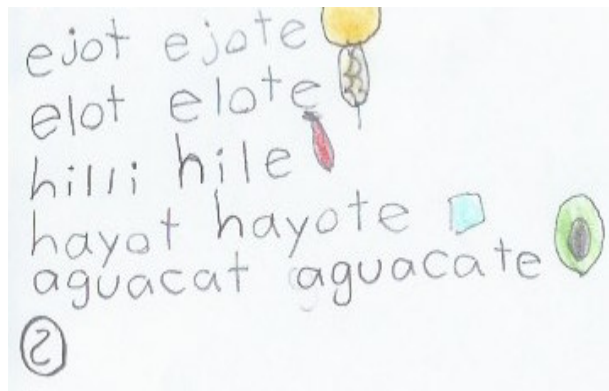 ejot ejote
elot elote
hilli hile
hayot hayote
aguacat aguacate
2